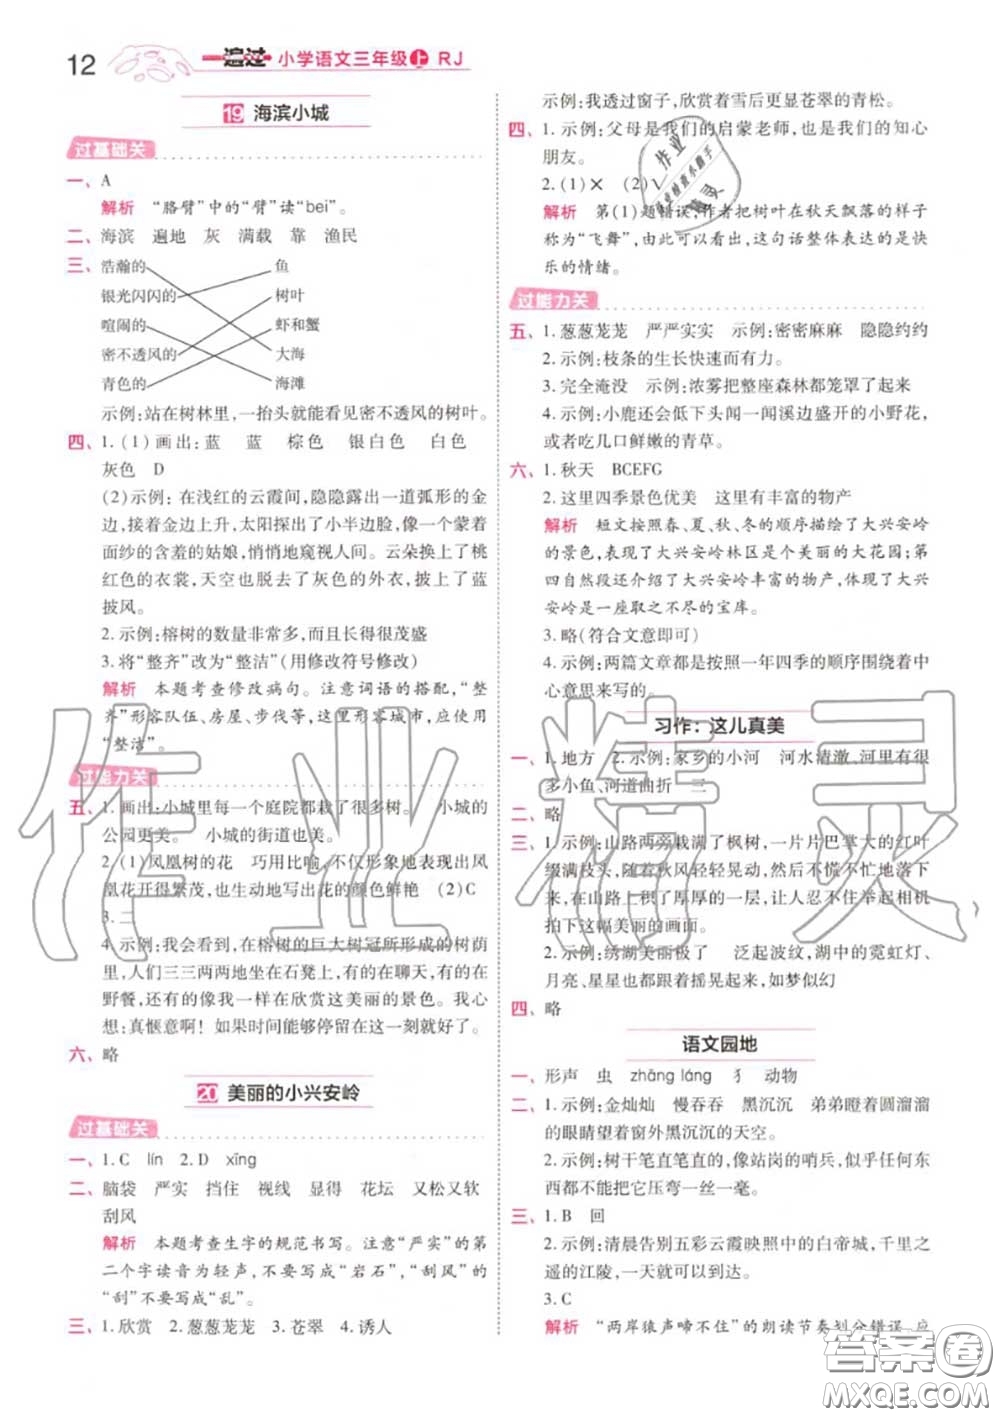 12 一遍过 小学语文三年级上 RJ
19 海滨小城
过基础关
一、A
解析 “胳臂”中的“臂”读“bei”。
二、海滨 遍地 灰 满载 靠 渔民
三、浩瀚的 鱼
银光闪闪的 树叶
喧闹的 虾和蟹
密不透风的 大海
青色的 海滩
示例:站在树林里,一抬头就能看见密不透风的树叶。
四、1.(1)画出:蓝 蓝 棕色 银白色 白色
灰色 D
(2)示例:在浅红的云霞间,隐隐露出一道弧形的金
边,接着金边上升,太阳探出了小半边脸,像一个蒙着
面纱的含羞的姑娘,悄悄地窥视人间。云朵换上了桃
红色的衣裳,天空也脱去了灰色的外衣,披上了蓝
披风。
2.示例:榕树的数量非常多,而且长得很茂盛
3.将“整齐”改为“整洁”(用修改符号修改)
解析 本题考查修改病句。注意词语的搭配,“整
齐”形容队伍、房屋、步伐等,这里形容城市,应用
“整洁”。
过能力关
五、1.画出:小城里每一个庭院都栽了很多树。 小城的
公园更美。 小城的街道也美。
2.(1)凤凰树的花 巧用比喻,不仅形象地表现出凤
凰花开得繁茂,也生动地写出花的颜色鲜艳 (2)C
3.二
4.示例:我会看到,在榕树的巨大树冠所形成的树荫
里,人们三三两两地坐在石凳上,有的在聊天,有的在
野餐,还有的像我一样在欣赏这美丽的景色。我会
想:真惬意啊! 如果时间能够停留在这一刻就好了。
六、略
20 美丽的小兴安岭
过基础关
一、1.C lín 2.D xīng
二、脑袋 严实 挡住 视线 显得 花坛 又松又软
刮风
解析 本题考查生字的规范书写。注意“严实”的第
二个字读音为轻声,不要写成“岩石”,“刮风”的
“刮”不要写成“乱”。
三、1.欣赏 2.葱葱茏茏 3.苍翠 4.诱人
示例:我透过窗子,欣赏着雪后更显苍翠的青松。
四、1.示例:父母是我们的启蒙老师,也是我们的知心
朋友。
2.(1)× (2)√
解析 第(1)题错误,作者把树叶在秋天飘落的样子
称为“飞舞”,由此可以看出,这句话整体表达的是快
乐的情绪。
过能力关
五、1.葱葱茏茏 严严实实 示例:密密麻麻 隐隐约约
2.示例:枝条的生长快速而有力。
3.完全淹没 示例:浓雾把整座森林都笼罩了起来
4.示例:小鹿还会低下头闻一闻溪边盛开的小野花,
或者吃几口鲜嫩的青草。
六、1.秋天 BCEFG
2.这里四季景色优美 这里有丰富的物产
解析 短文按照春、夏、秋、冬的顺序描绘了大兴安岭
的景色,表现了大兴安岭林区是个美丽的大花园;第
四自然段还介绍了大兴安岭丰富的物产,体现了大兴
安岭是一座取之不尽的宝库。
3.略(符合文意即可)
4.示例:两篇文章都是按照一年四季的顺序围绕着中
心意思来写的。
习作:这儿真美
一、1.地方 2.示例:家乡的小河 河水清澈、河里有很
多小鱼、河道曲折 三
二、略
三、1.示例:山路两旁栽满了枫树,一片片巴掌大的红叶
缀满枝头,随着秋风轻轻晃动,然后不慌不忙地落下
来,在山路上积了厚厚的一层,让人忍不住举起相机
拍下这幅美丽的画面。
2.示例:绣湖美丽极了 泛起波纹,湖中的霓虹灯、
月亮、星星都跟着摇晃起来,如梦似幻
四、略
语文园地
一、形声 虫 zhāng láng 犭 动物
二、1.示例:金灿灿 慢吞吞 黑沉沉 弟弟瞪着圆溜溜
的眼睛望着窗外黑沉沉的天空。
2.示例:树干笔直笔直的,像站岗的哨兵,似乎任何东
西都不能把它压弯一丝一毫。
三、1.B 回
2.示例:清晨告别五彩云霞映照中的白帝城,千里之
遥的江陵,一天就可以到达。
3.C
解析 “两岸猿声啼不住”的朗读节奏划分错误,应
作业精灵
答案圈
MXQE.COM